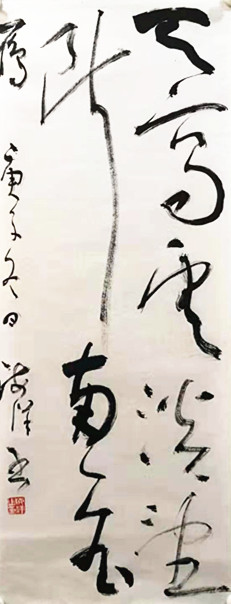 天高云淡望
断南飞
雁 庚子冬日 海洋书